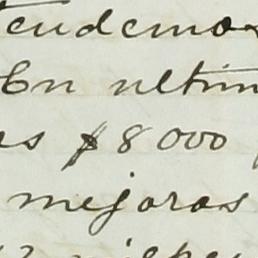 tendemos
En ultim
as $8000
mejoras